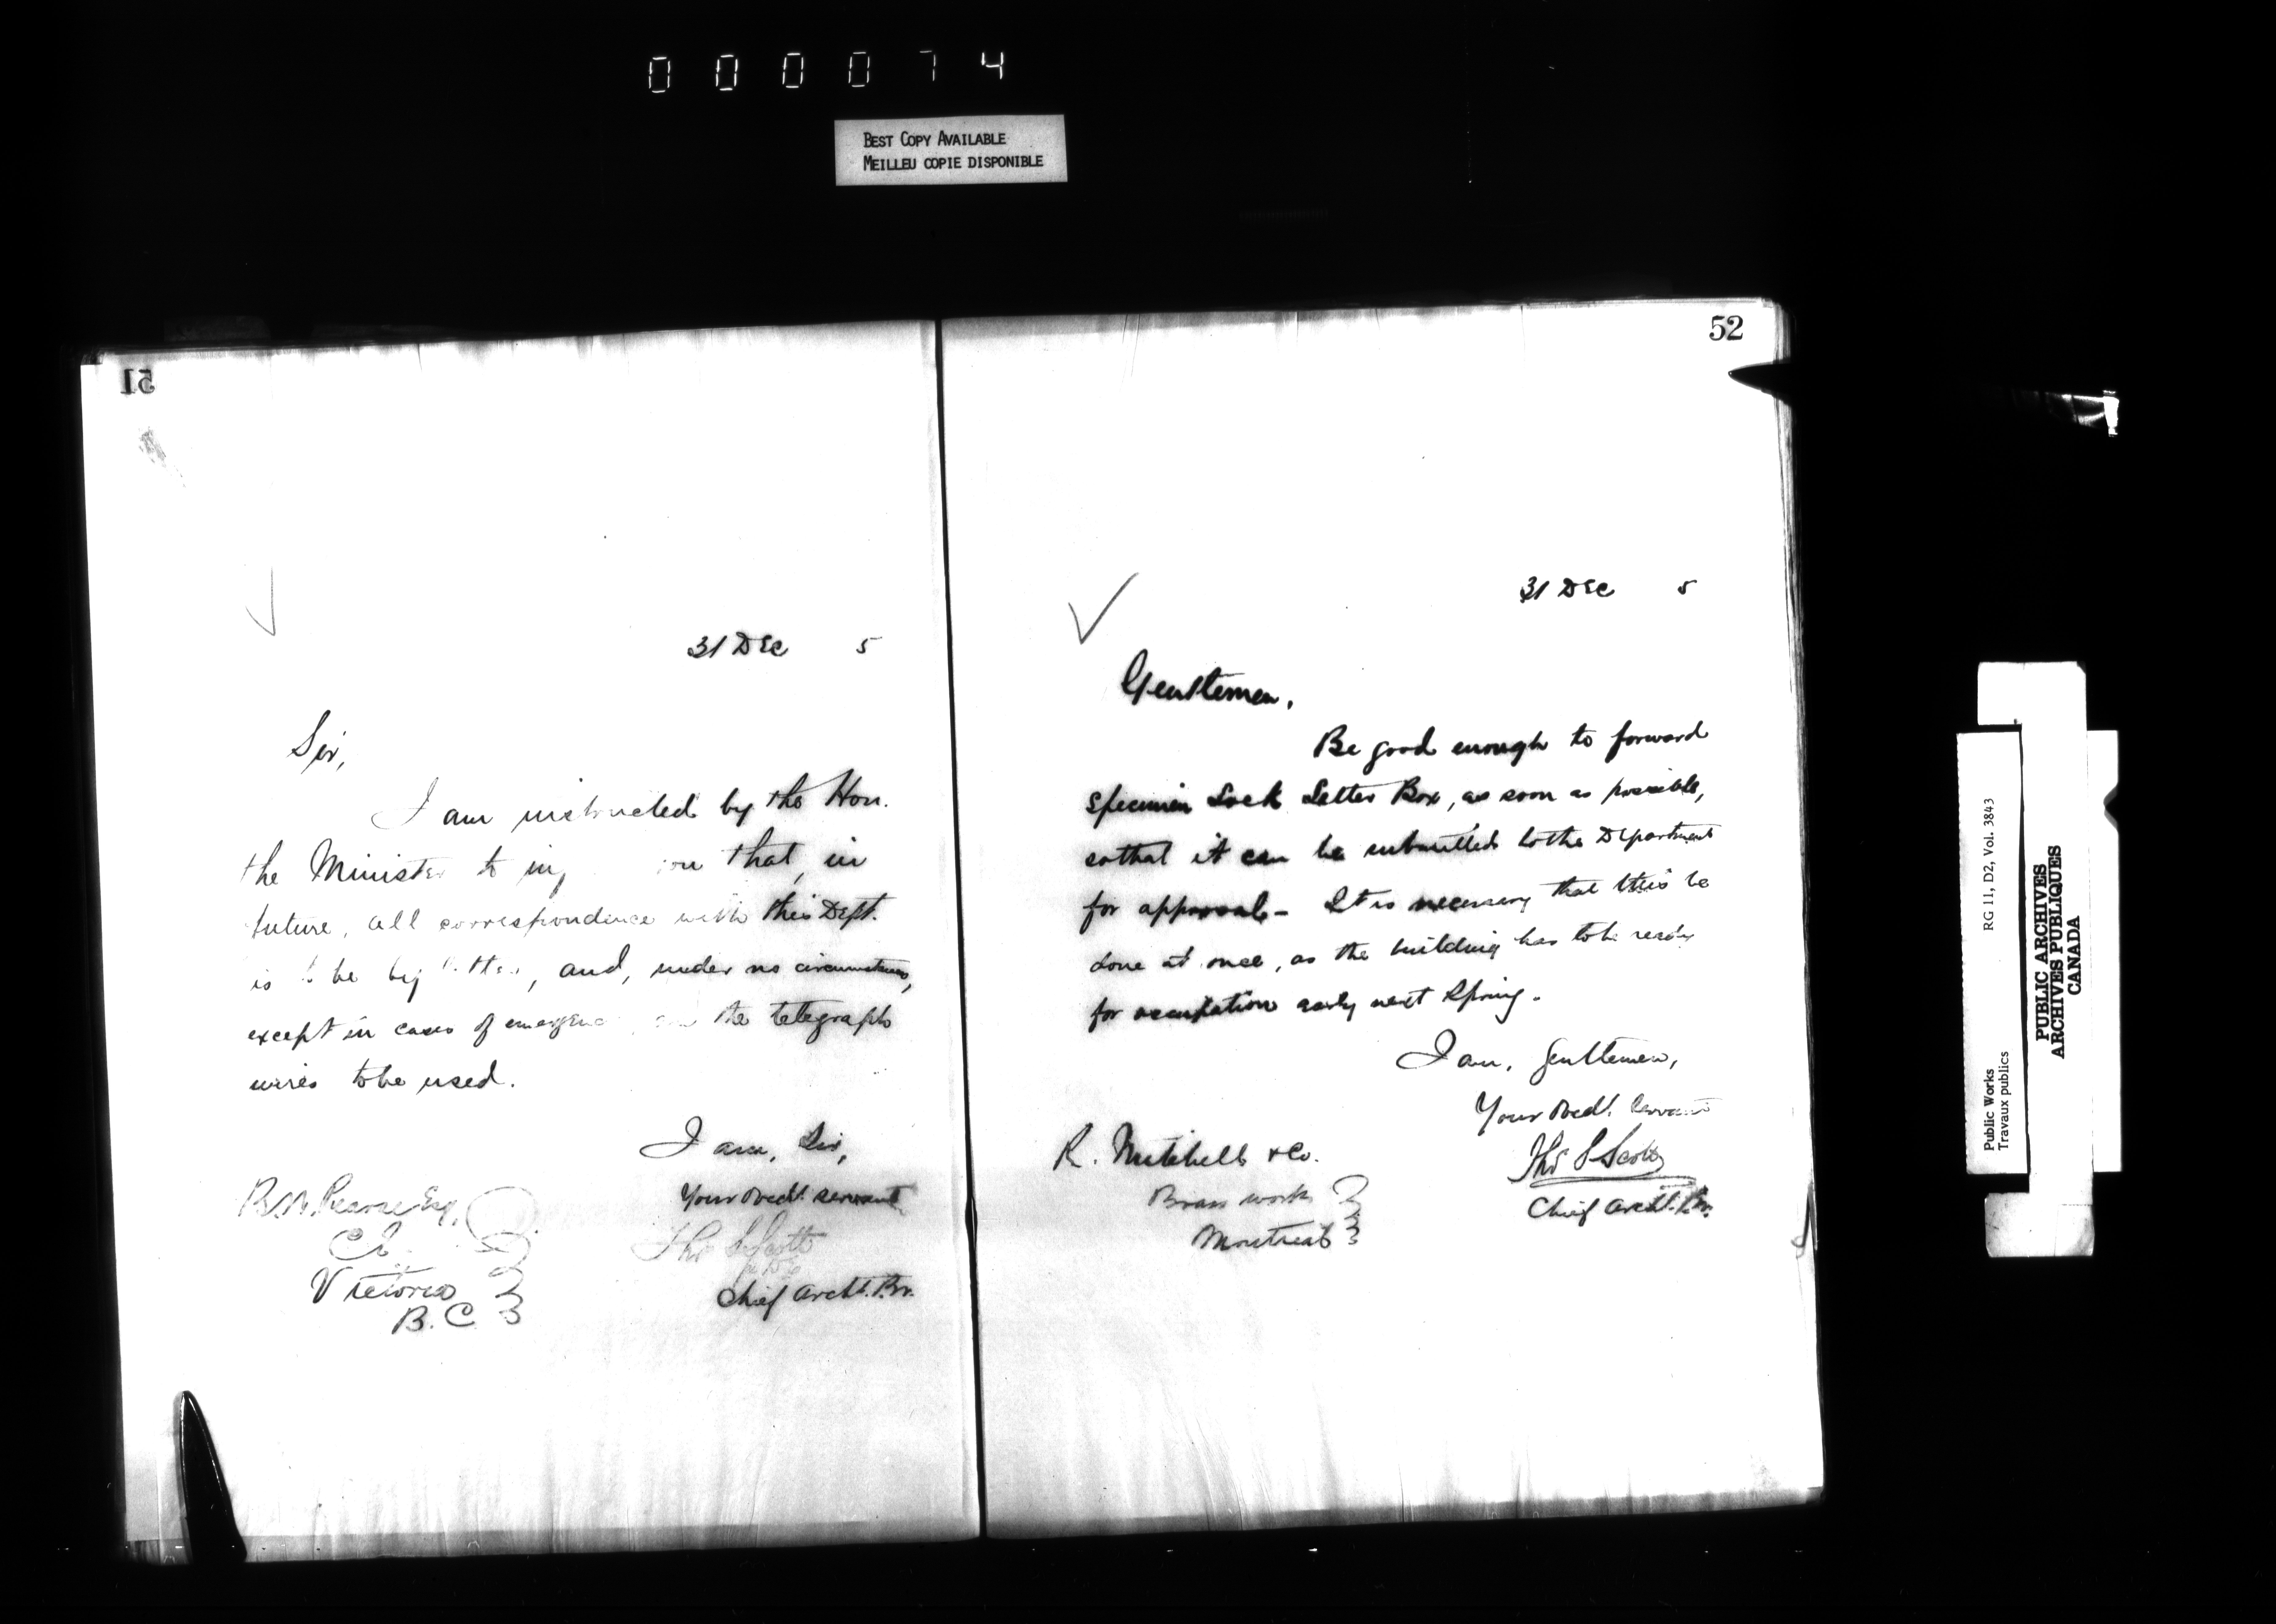 000074
BEST COPY AVAILABLE
MEILLEU COPIE DISPONIBLE
51
31 Dec 5
Sir,
I am instructed by the Hon.
the Minister to in you that, in
future, all correspondence with this Dept.
is to be by letter, and, under no circumstances,
except in cases of emergenc are the telegraph
wires to be used.
I am, Sir,
Your obedt. servant
Thos S Scott
Chief Archt. P.W.
B.W. Pearse Esq,
C.E.
Victoria
B.C.
52
31 Dec 5
Gentlemen,
Be good enough to forward
specimen Lock Letter Box, as soon as possible,
so that it can be submitted to the Department
for approval – It is necessary that this be
done at once, as the building has to be ready
for occupation early next Spring.
I am, Gentlemen,
Your obedt. servant
Thos S Scott
Chief Archt. P.W.
R. Mitchell & Co.
Brass works
Montreal
Public Works
Travaux publics
RG 11, D2, Vol. 3843
PUBLIC ARCHIVES
ARCHIVES PUBLIQUES
CANADA